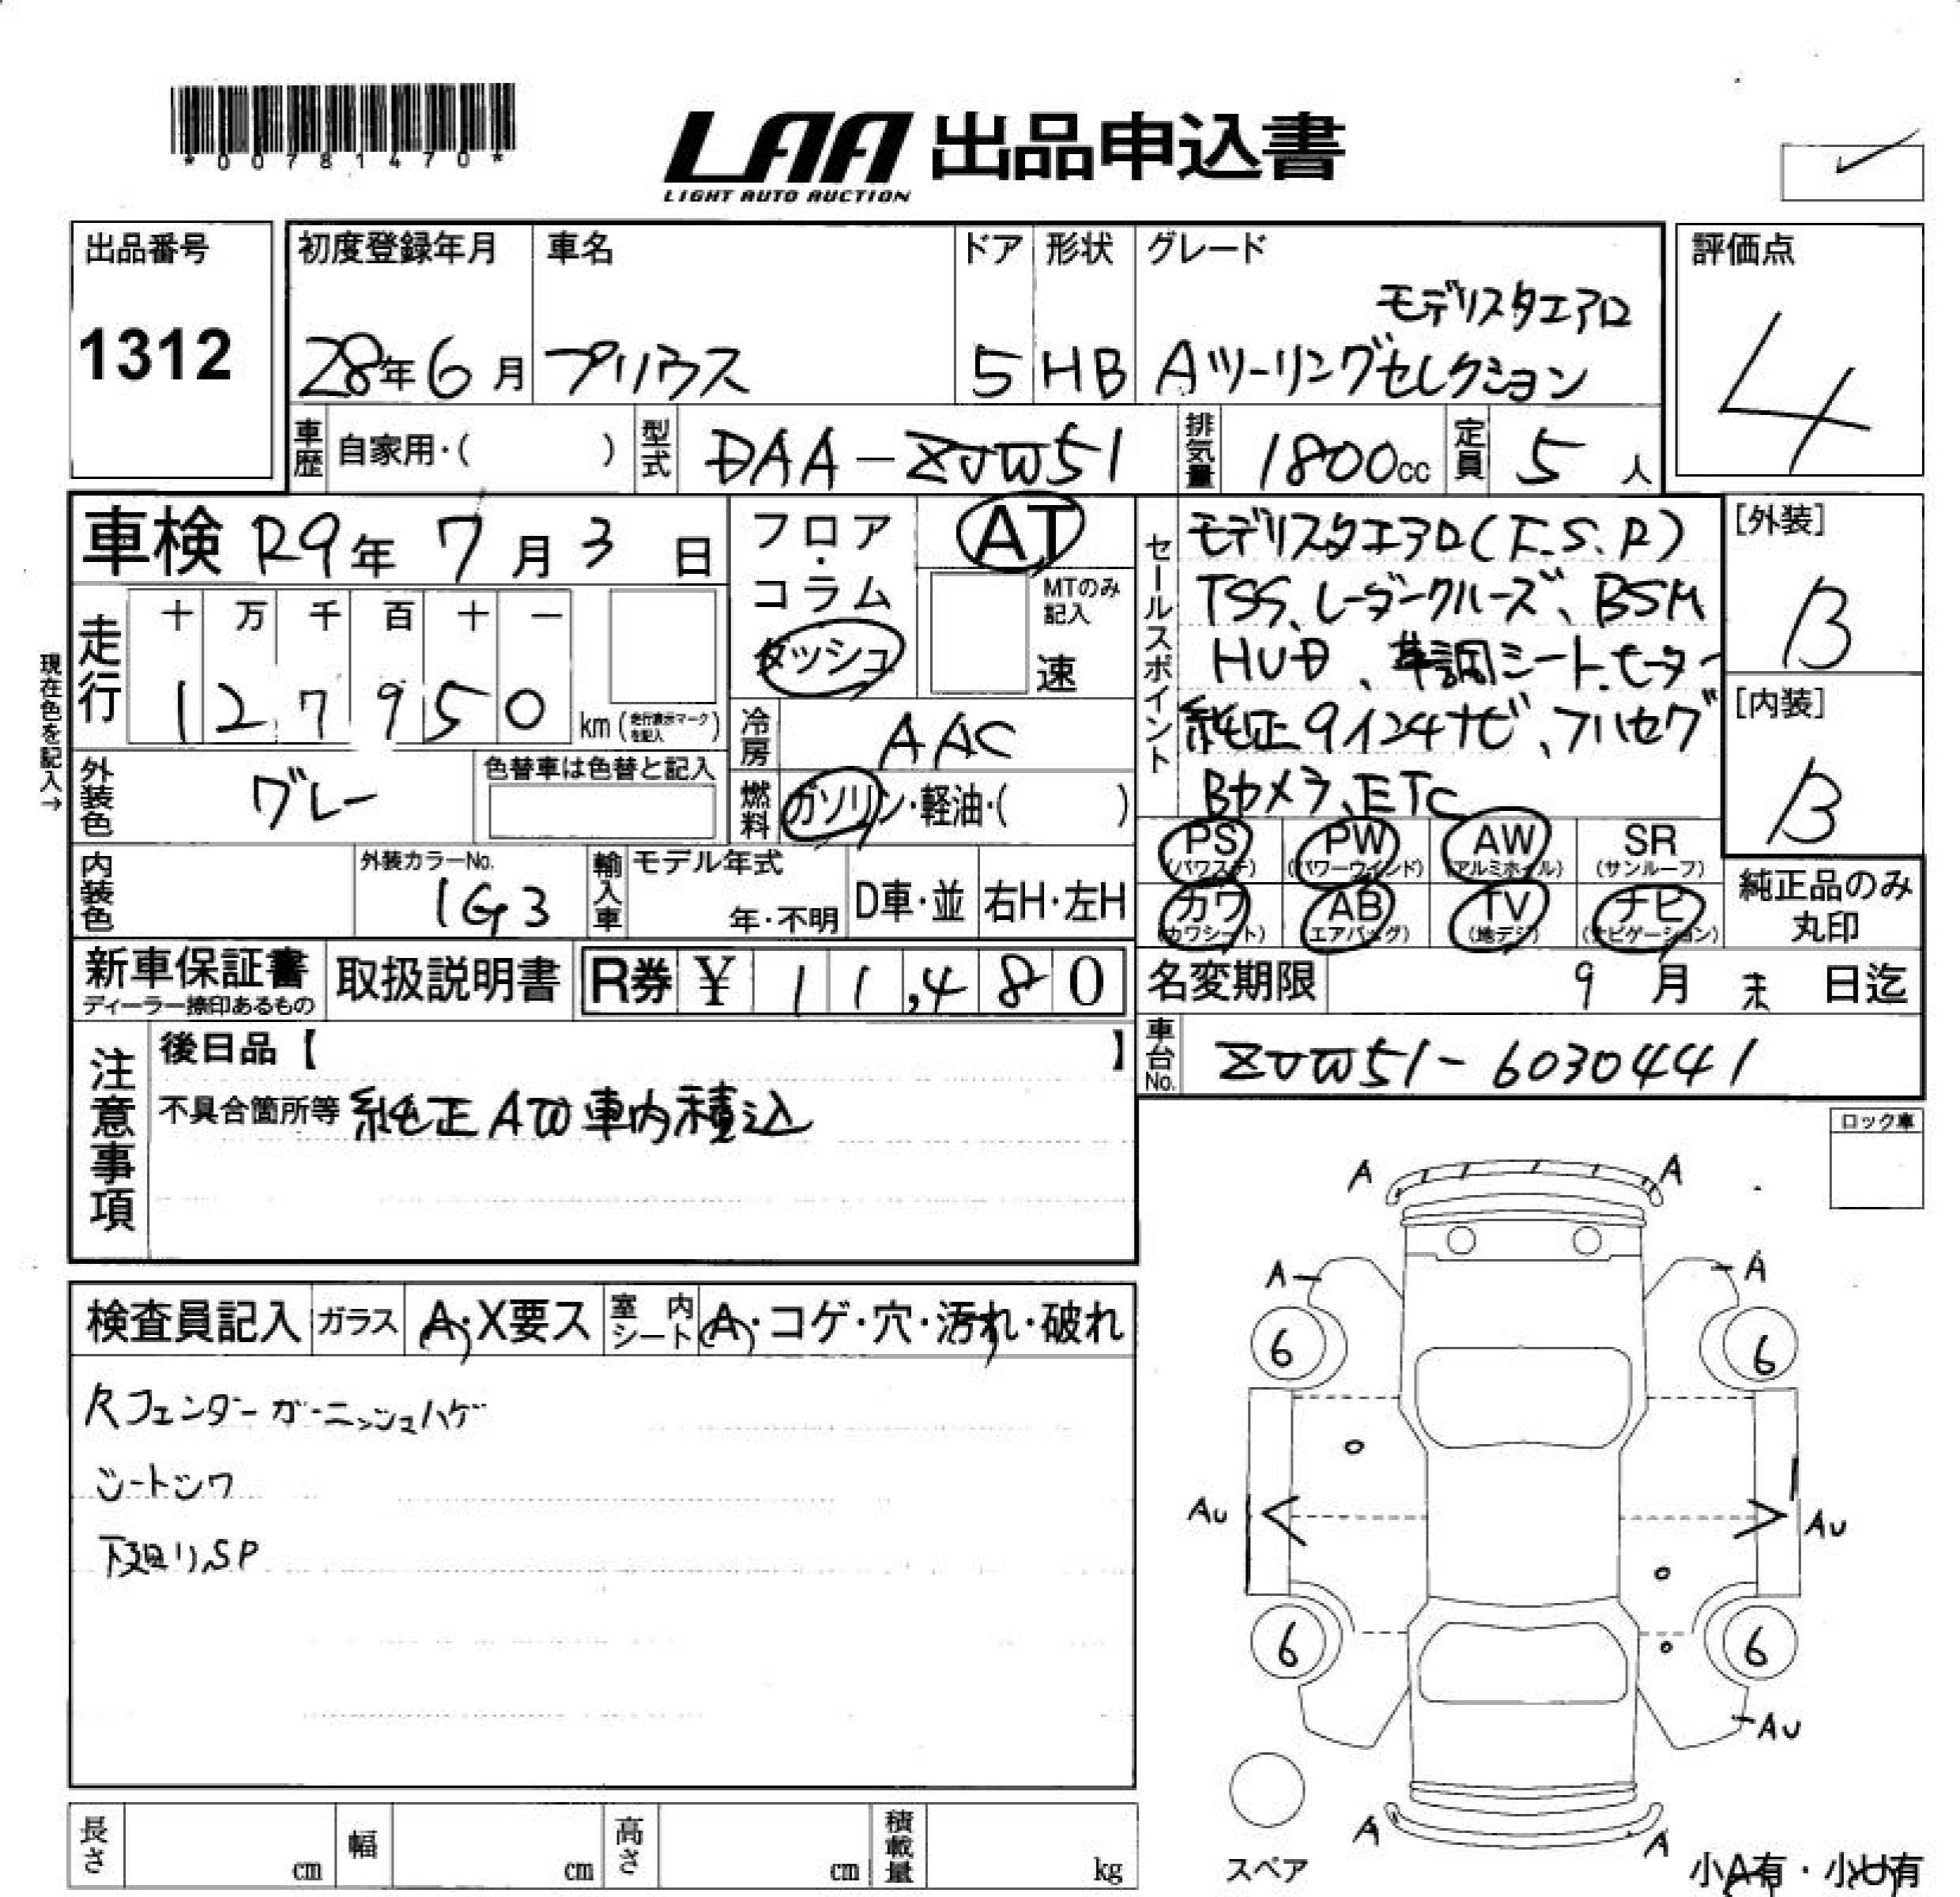 *00781470*
LAA 出品申込書
LIGHT AUTO AUCTION
出品番号
1312
初度登録年月
28年6月
車名
プリウス
ドア
5
形状
HB
グレード
モデリスタエアロ
Aツーリングセレクション
評価点
4
車歴
自家用・( )
型式
DAA-ZVW51
排気量
1800cc
定員
5人
車検 R9年 7月 3日
現在色を記入→
走行
十 万 千 百 十 一
1 2 7 9 5 0
km(走行表示マークを記入)
フロア・コラム
ダッシュ
AT
MTのみ記入
速
冷房
AAC
外装色
グレー
色替車は色替と記入
燃料
ガソリン・軽油・( )
内装色
外装カラーNo.
1G3
輸入車
モデル年式
年・不明
D車・並
右H・左H
セールスポイント
モデリスタエアロ(F.S.R)
TSS、レーダークルーズ、BSM
HUD、革調シート、ヒーター
純正9インチナビ、フルセグ
Bカメラ、ETC
[外装]
B
[内装]
B
PS
(パワステ)
PW
(パワーウインド)
AW
(アルミホイル)
SR
(サンルーフ)
カワ
(カワシート)
AB
(エアバッグ)
TV
(地デジ)
ナビ
(ナビゲーション)
純正品のみ
丸印
新車保証書
ディーラー捺印あるもの
取扱説明書
R券 ¥ 11,480
名変期限
9月 末 日迄
車台No.
ZVW51-6030441
注意事項
後日品【 】
不具合箇所等 純正AW車内積込
ロック車
検査員記入
ガラス
A・X要ス
室内シート
A・コゲ・穴・汚れ・破れ
フェンダーガーニッシュハゲ
シートシワ
下廻り、SP
A A
A A
6 6
AU AU
6 6
AU
A A
スペア
小A有・小U有
長さ
cm
幅
cm
高さ
cm
積載量
kg